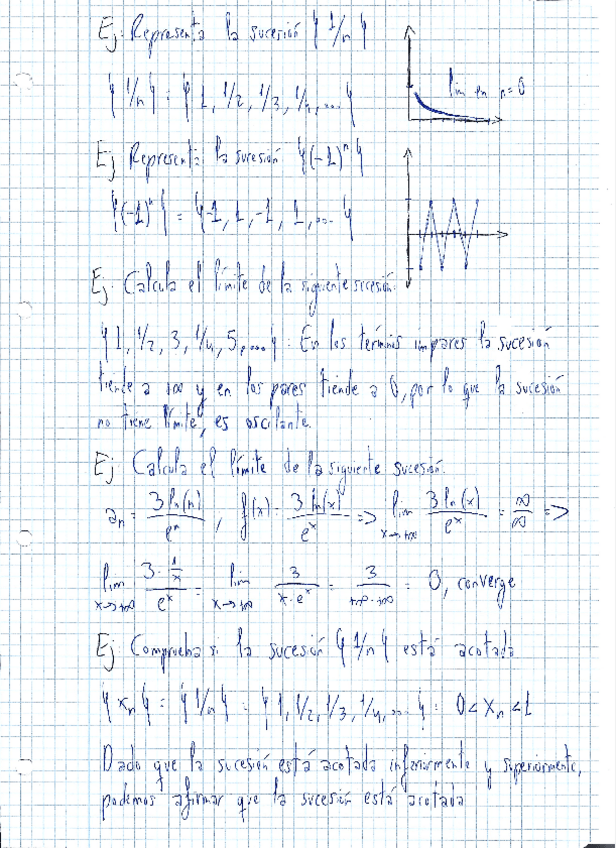 Ej: Representa la sucesión {1/n}
{1/n} = {1, 1/2, 1/3, 1/4, ...}
lim en n=0
Ej Representa la sucesión {(-1)ⁿ}
{(-1)ⁿ} = {-1, 1, -1, 1, ...}
Ej. Calcula el límite de la siguiente sucesión.
{1, 1/2, 3, 1/4, 5, ...} : En los términis impares la sucesión
tiende a +∞ y en los pares tiende a 0, por lo que la sucesión
no tiene límite, es oscilante.
Ej Calcula el límite de la siguiente sucesión.
aₙ = 3 ln(n)/eⁿ , f(x) = 3 ln(x)/eˣ => lim x→+∞ 3 ln(x)/eˣ = ∞/∞ =>
lim x→+∞ (3 · 1/x)/eˣ = lim x→+∞ 3/(x·eˣ) = 3/(+∞·+∞) = 0, converge
Ej Comprueba si la sucesión {1/n} está acotada
{xₙ} = {1/n} = {1, 1/2, 1/3, 1/4, ...} = 0 < Xₙ < 1
Dado que la sucesión está acotada inferiormente y superiormente,
podemos afirmar que la sucesión está acotada